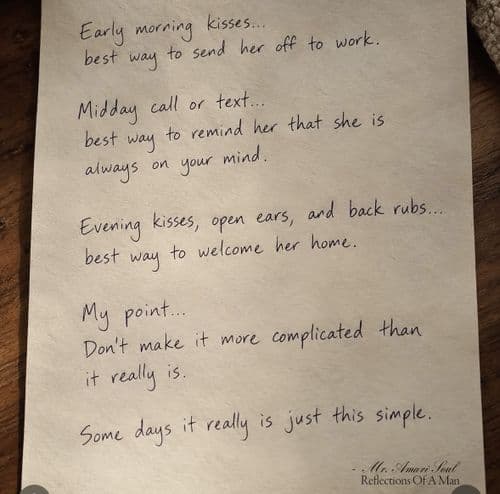 Early morning kisses...
best way to send her off to work.
Midday call or text...
best way to remind her that she is
always on your mind.
Evening kisses, open ears, and back rubs...
best way to welcome her home.
My point...
Don't make it more complicated than
it really is.
Some days it really is just this simple.
- Mr. Amari Soul
Reflections Of A Man